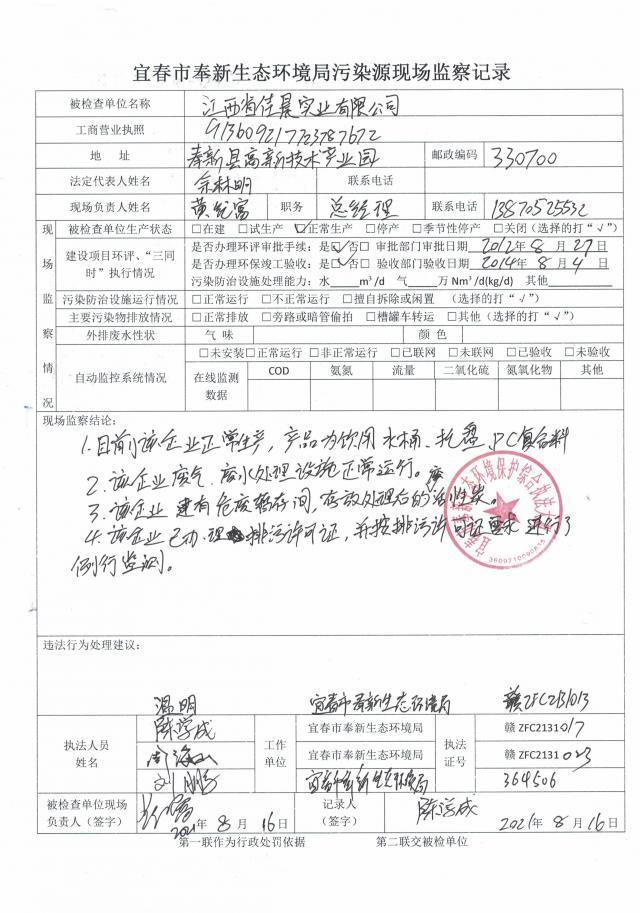 宜春市奉新生态环境局污染源现场监察记录
被检查单位名称 江西省佳晨实业有限公司
工商营业执照 913609217723787672
地 址 奉新县高新技术产业园 邮政编码 330700
法定代表人姓名 余林明 联系电话
现场负责人姓名 黄 富 职务 总经理 联系电话 13870525532
现场监察情况
被检查单位生产状态 □在建 □试生产 ☑正常生产 □停产 □季节性停产 □关闭（选择的打“√”）
建设项目环评、“三同时”执行情况
是否办理环评审批手续：是☑否□ 审批部门审批日期 2012年 8 月 27 日
是否办理环保竣工验收：是☑否□ 验收部门验收日期 2014年 8 月 4 日
污染防治设施处理能力：水 m³/d 气 万Nm³/d(kg/d) 其他
污染防治设施运行情况 □正常运行 □不正常运行 □擅自拆除或闲置 （选择的打“√”）
主要污染物排放情况 □正常排放 □旁路或暗管偷拍 □槽罐车转运 □其他（选择的打“√”）
外排废水性状 气 味 颜 色
自动监控系统情况 □未安装□正常运行 □非正常运行 □已联网 □未联网 □已验收 □未验收
在线监测数据 COD 氨氮 流量 二氧化硫 氮氧化物 其他
现场监察结论：
1.目前该企业正常生产，产品为饮用水桶、托盘、PC复合料
2.该企业废气、废水处理设施正常运行。
3.该企业建有危废暂存间，存放处理后的废活性炭。
4.该企业已办理排污许可证，并按排污许可证要求进行了
例行监测。
宜春市奉新生态环境保护综合执法大队
3609210090815
违法行为处理建议：
温明 宜春市奉新生态环境局 赣ZFC2131013
执法人员姓名 工作单位 执法证号
陈学成 宜春市奉新生态环境局 赣 ZFC2131017
周海 宜春市奉新生态环境局 赣 ZFC2131023
刘鹏 宜春市奉新生态环境局 364506
被检查单位现场负责人（签字） 2021年 8 月 16 日
记录人（签字） 陈学成 2021年 8 月 16 日
第一联作为行政处罚依据 第二联交被检单位